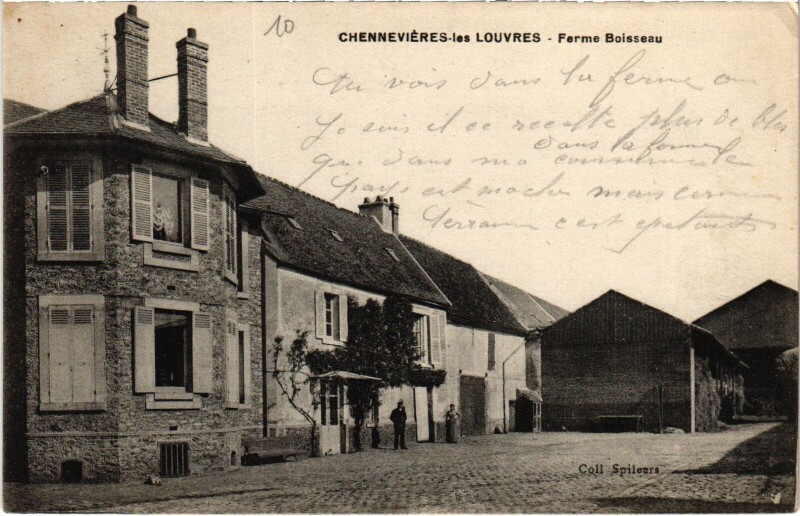 10
CHENNEVIÈRES-les LOUVRES - Ferme Boisseau
Tu vois dans la ferme ou
Je suis il ce recolte plus de blés
dans la ferme
que dans ma commune
pays est moche mais comme
terrain c'est epatant
Coll Spileers